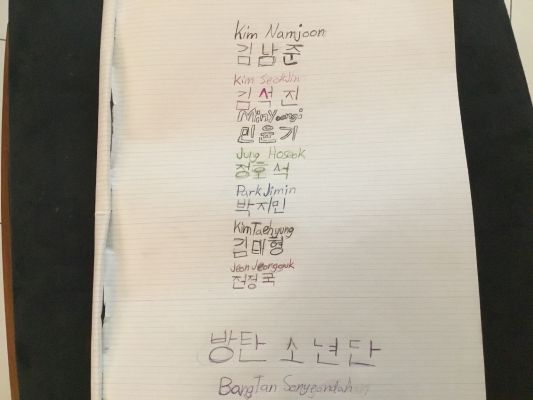 Kim Namjoon
김남준
Kim SeokJin
김석진
Min Yoongi
민윤기
Jung Hoseok
정호석
Park Jimin
박지민
Kim Taehyung
김태형
Jeon Jeongguk
전정국
방탄 소년단
BangTan